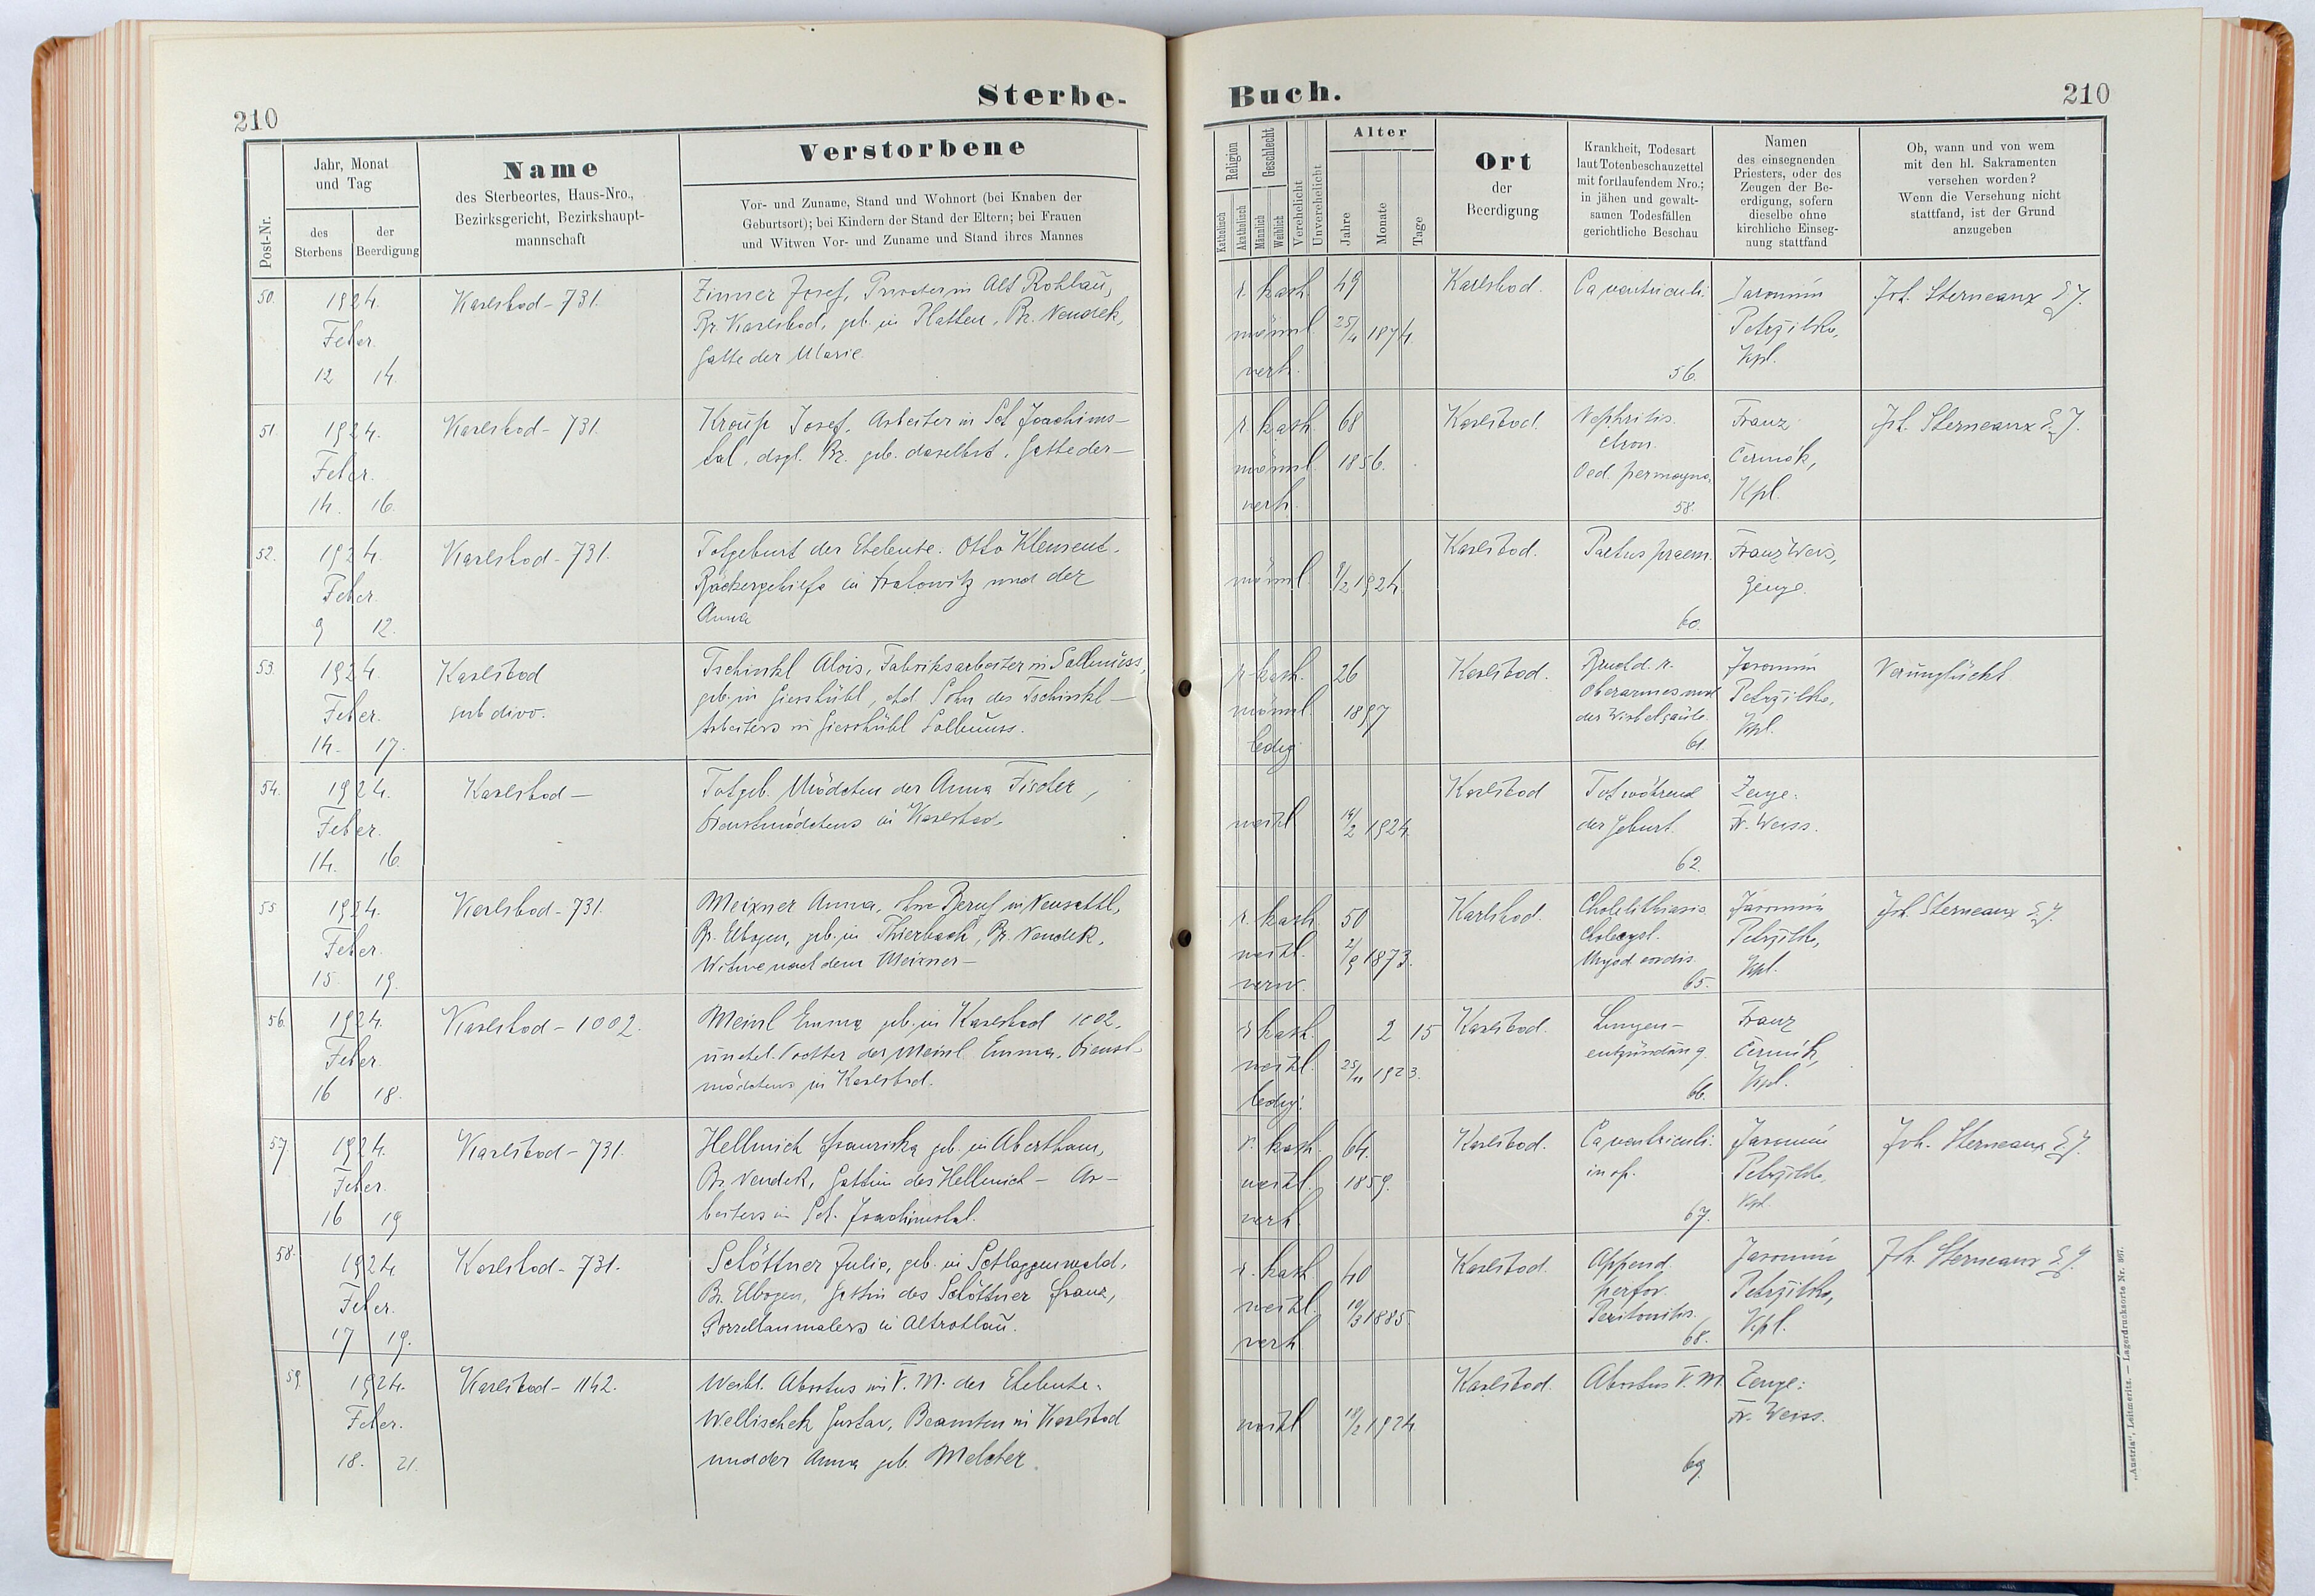 Sterbe-
Buch.
210
210
Post-Nr.
Jahr, Monat
und Tag
des
Sterbens
der
Beerdigung
Name
des Sterbeortes, Haus-Nro.,
Bezirksgericht, Bezirkshaupt-
mannschaft
Verstorbene
Vor- und Zuname, Stand und Wohnort (bei Knaben der
Geburtsort); bei Kindern der Stand der Eltern; bei Frauen
und Witwen Vor- und Zuname und Stand ihres Mannes
Religion
Katholisch
Akatholisch
Geschlecht
Männlich
Weiblich
Verehelicht
Unverehelicht
Alter
Jahre
Monate
Tage
Ort
der
Beerdigung
Krankheit, Todesart
laut Totenbeschauzettel
mit fortlaufendem Nro.;
in jähen und gewalt-
samen Todesfällen
gerichtliche Beschau
Namen
des einsegnenden
Priesters, oder des
Zeugen der Be-
erdigung, sofern
dieselbe ohne
kirchliche Einseg-
nung stattfand
Ob, wann und von wem
mit den hl. Sakramenten
versehen worden?
Wenn die Versehung nicht
stattfand, ist der Grund
anzugeben
50.
1924.
Feber.
12 14.
Karlsbad - 731.
Zinner Josef, in Alt Rohlau,
Bz. Karlsbad, geb. in Platten, Bz. Neudek,
Gatte der Marie.
r. kath. 49
männl. 25/4 1874
verh.
Karlsbad.
Ca ventriculi.
56.
Jaromin
Petrzilka,
Kpl.
Joh. Sterneaux
51.
1924.
Feber.
14. 16.
Karlsbad - 731.
Kraup Josef, Arbeiter in Sct Joachims-
tal, dsgl. Bz. geb. daselbst, Gatte der -
r. kath. 68
männl. 1856.
verh.
Karlsbad.
Nephritis.
chron.
Oed. permagna.
58.
Franz
Čermák,
Kpl.
Joh. Sterneaux
52.
1924.
Feber.
9 12.
Karlsbad - 731.
Totgeburt der Eheleute. Otto Klement,
Bäckergehilfe in und der
Anna
männl. 9/2 1924.
Karlsbad.
Partus praem.
60.
Franz Weis,
Zeuge.
53.
1924.
Feber.
14. 17.
Karlsbad
sub divo.
Tschinkl Alois, Fabriksarbeiter in Sollmuss,
geb. in Giesshübl, ehel. Sohn des Tschinkl -
Arbeiters in Giesshübl Sollmuss.
r. kath. 26
männl. 1897
ledig
Karlsbad.
Bruch d. r.
Oberarmes und
der Wirbelsäule.
61.
Jaromin
Petrzilka,
Kpl.
Verunglückt
54.
1924.
Feber.
14. 16.
Karlsbad -
Totgeb. Mädchen der Anna Fischer,
Dienstmädchens in Karlsbad.
weibl 14/2 1924.
Karlsbad
Tot während
der Geburt.
62.
Zeuge:
Fr. Weiss.
55
1924.
Feber.
15 19.
Karlsbad - 731.
Meixner Anna, ohne Beruf in Neusattl,
Bz. Elbogen, geb. in Thierbach, Bz. Neudek.
Witwe nach dem Meixner -
r. kath 50
weibl. 2/9 1873.
verw.
Karlsbad.
Cholelithiasis.
Cholecyst.
Myod. cordis.
65.
Jaromin
Petrzilka,
Kpl.
Joh. Sterneaux
56.
1924.
Feber.
16 18.
Karlsbad - 1002.
Meinl Emma geb. in Karlsbad 1002,
unehel. Tochter der Meinl Emma, Dienst-
mädchens in Karlsbad.
r. kath. 2 15
weibl. 25/11 1923.
ledig.
Karlsbad.
Lungen-
entzündung.
66.
Franz
Čermák,
Kpl.
57.
1924.
Feber.
16 19
Karlsbad - 731.
Hellmich Franziska geb. in Abertham,
Bz. Neudek, Gattin des Hellmich - Ar-
beiters in Sct. Joachimstal.
r. kath. 64.
weibl. 1859.
verh.
Karlsbad.
Ca ventriculi.
inop.
67.
Jaromin
Petrzilka,
Kpl.
Joh. Sterneaux
58.
1924.
Feber.
17 19.
Karlsbad - 731.
Schöttner Julie, geb. in Schlaggenwald,
Bz. Elbogen, Gattin des Schöttner Franz,
Porzellanmalers in Altrohlau.
r. kath 40
weibl. 19/3 1885.
verh
Karlsbad.
Append.
perfor.
Peritonitis.
68.
Jaromin
Petrzilka,
Kpl.
Joh. Sterneaux
59
1924.
Feber.
18. 21.
Karlsbad - 1142.
Weibl. Abortus im V. M. der Eheleute.
Wellischek Gustav, Beamten in Karlsbad
und der Anna geb. Melcher.
weibl 18/2 1924.
Karlsbad.
Abortus V. M.
69
Zeuge:
Fr. Weiss.
„Austria“, Leitmeritz. — Lagerdrucksorte Nr. 867.